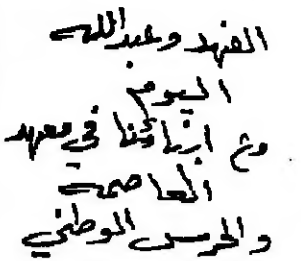 الفهد وعبدالله
اليوم
مع ابنائنا في معهد
العاصمه
والحرس الوطني